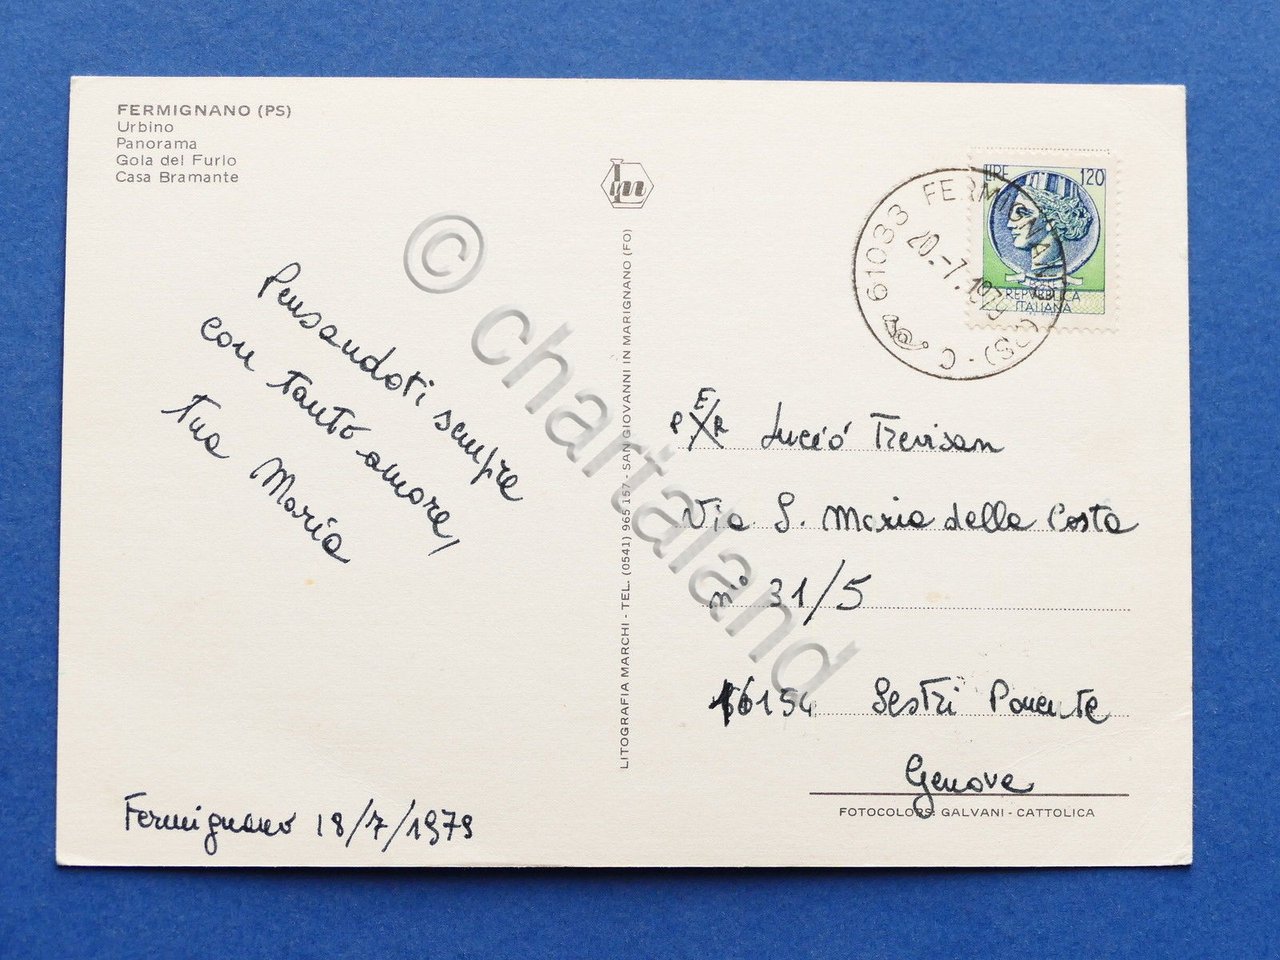 FERMIGNANO (PS)
Urbino
Panorama
Gola del Furlo
Casa Bramante
LIRE 120
REPVBBLICA
ITALIANA
61033 FERMIGNANO (PS) - C
20.-7.1979
lm
Pensandoti sempre
con tanto amore,
tua Maria
Fermignano 18/7/1979
LITOGRAFIA MARCHI - TEL. (0541) 965 157 - SAN GIOVANNI IN MARIGNANO (FO)
PER Lucio Trevisan
Via S. Maria della Costa
n° 31/5
16154 Sestri Ponente
Genova
FOTOCOLORS: GALVANI - CATTOLICA
© chartaland